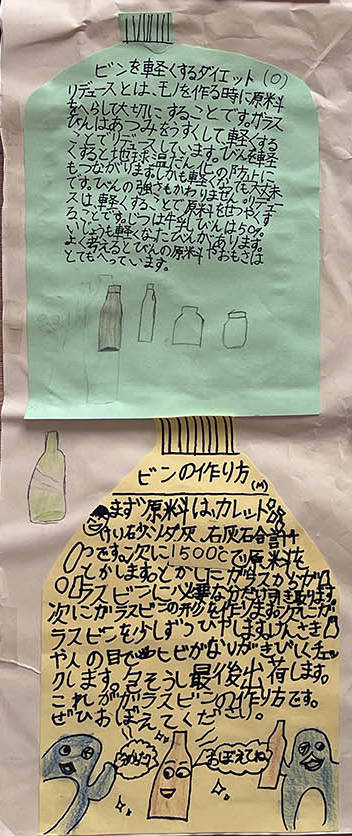 ビンを軽くするダイエット(O)
リデュースとは、モノを作る時に原料
をへらして大切にすることです。ガラス
びんはあつみをうすくして軽くする
ことでリデュースしています。びんを軽
くすると地球温だん化の防止に
もつながります。しかも軽くても大丈夫
です。びんの強さもかわりません。リデュー
スは、軽くすることで原料をせつやくす
ることです。じつは牛乳びんは50%
いじょうも軽くなたびんがあります。
よく考えるとびんの原料やおもさは
とてもへっています。
ビンの作り方(M)
まず原料は、カレット
けい砂、ソーダ灰、石灰石合計
つです。次に1500℃で原料を
とかします。とかしたガラスからガ
ラスビンに必要な分だけ切り取ります
次にガラスビンの形を作ります。次にガ
ラスビンを少しずつひやします。けんさき
や人の目でヒビがないがきびしくチェッ
クします。そうし最後出荷します。
これがガラスビンの作り方です。
ぜひおぼえてください。
おぼえてね